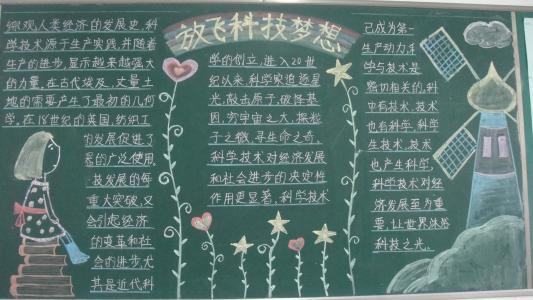 放飞科技梦想
纵观人类经济的发展史,科
学技术源于生产实践,并随着
生产的进步,显示越来越强大
的力量,在古代埃及,丈量土
地的需要产生了最初的几何
学,在18世纪的英国,纺织工
的发展促进了
的广泛使用,
技发展的每
重大突破,又
会引起经济
的变革和社
会的进步,尤
其是近代科
学的创立,进入20世
纪以来,科学家追逐星
光,敲击原子,破译基
因,穷宇宙之大,探粒
子之微,寻生命之奇,
科学技术对经济发展
和社会进步的决定性
作用更显著,科学技术
已成为第一
生产动力,科
学与技术是
密切相关的,科
中有技术,技术
也有科学,科学
生技术,技术
也产生科学,
科学技术对经
济发展至为重
要,让世界沐浴
科技之光。